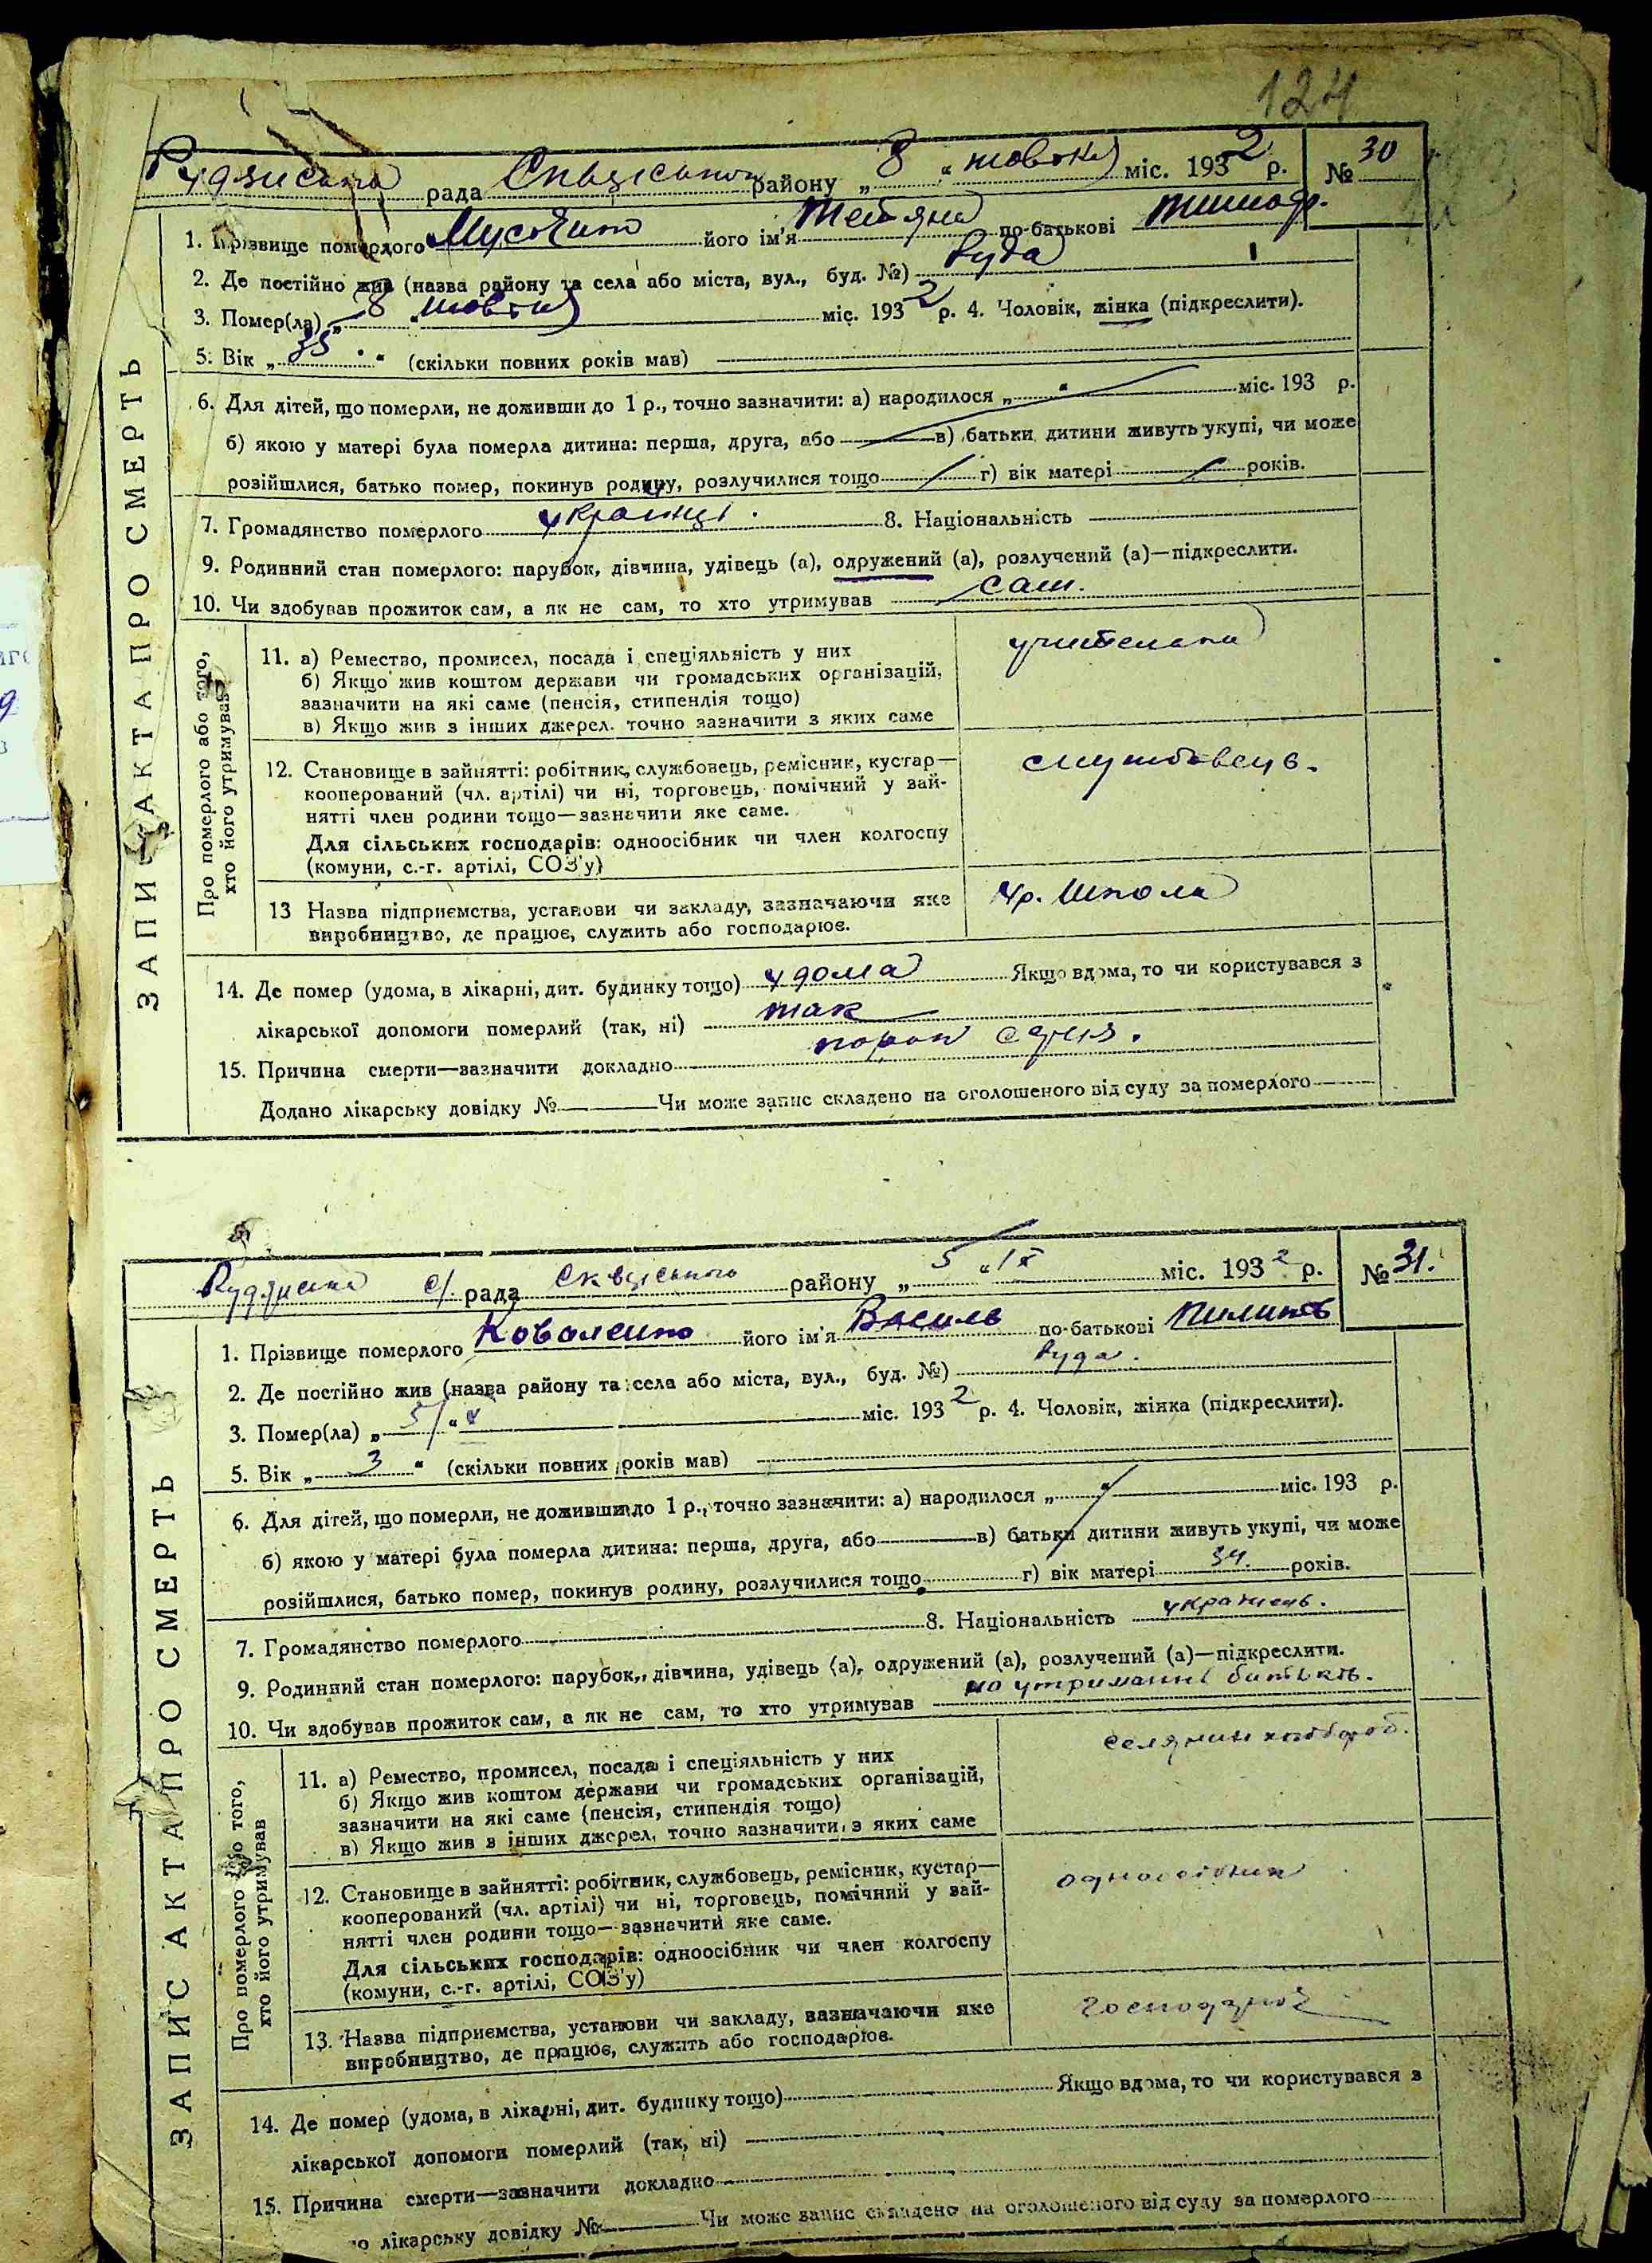 124
Рудянська рада Сквирського району „ 8 “ жовтня міс. 1932 р. № 30
1. Прізвище померлого його ім'я Тетяна по-батькові Тимоф.
2. Де постійно жив (назва району та села або міста, вул., буд. №) Руда
3. Помер(ла) „ 8 “ жовтня міс. 1932 р. 4. Чоловік, жінка (підкреслити).
5. Вік „ 35 “ (скільки повних років мав)
6. Для дітей, що померли, не доживши до 1 р., точно зазначити: а) народилося „ “ міс. 193 р.
б) якою у матері була померла дитина: перша, друга, або в) батьки дитини живуть укупі, чи може
розійшлися, батько помер, покинув родину, розлучилися тощо г) вік матері років.
7. Громадянство померлого 8. Національність
9. Родинний стан померлого: парубок, дівчина, удівець (а), одружений (а), розлучений (а)—підкреслити.
10. Чи здобував прожиток сам, а як не сам, то хто утримував сам.
ЗАПИС АКТА ПРО СМЕРТЬ
Про померлого або того,
хто його утримував
11. а) Ремество, промисел, посада і спеціяльність у них
учителька
б) Якщо жив коштом держави чи громадських організацій,
зазначити на які саме (пенсія, стипендія тощо)
в) Якщо жив з інших джерел, точно зазначити з яких саме
12. Становище в зайнятті: робітник, службовець, ремісник, кустар—
службовець.
кооперований (чл. артілі) чи ні, торговець, помічний у зай-
нятті член родини тощо—зазначити яке саме.
Для сільських господарів: одноосібник чи член колгоспу
(комуни, с.-г. артілі, СОЗ'у)
13 Назва підприємства, установи чи закладу, зазначаючи яке
школа
виробництво, де працює, служить або господарює.
14. Де помер (удома, в лікарні, дит. будинку тощо) удома Якщо вдома, то чи користувався з
лікарської допомоги померлий (так, ні) так
15. Причина смерти—зазначити докладно порок
Додано лікарську довідку № Чи може запис складено на оголошеного від суду за померлого
Рудянська с/. рада Сквирського району „ 5 “ IX міс. 1932 р. № 31.
1. Прізвище померлого Коваленко його ім'я Василь по-батькові Пилипів
2. Де постійно жив (назва району та села або міста, вул., буд. №) Руда.
3. Помер(ла) „ 5 “ міс. 1932 р. 4. Чоловік, жінка (підкреслити).
5. Вік „ 3 “ (скільки повних років мав)
6. Для дітей, що померли, не доживши до 1 р., точно зазначити: а) народилося „ “ міс. 193 р.
б) якою у матері була померла дитина: перша, друга, або в) батьки дитини живуть укупі, чи може
розійшлися, батько помер, покинув родину, розлучилися тощо г) вік матері 34. років.
7. Громадянство померлого 8. Національність українець.
9. Родинний стан померлого: парубок, дівчина, удівець (а), одружений (а), розлучений (а)—підкреслити.
10. Чи здобував прожиток сам, а як не сам, то хто утримував на утриманні батьків.
ЗАПИС АКТА ПРО СМЕРТЬ
Про померлого або того,
хто його утримував
11. а) Ремество, промисел, посада і спеціяльність у них
селянин хлібороб.
б) Якщо жив коштом держави чи громадських організацій,
зазначити на які саме (пенсія, стипендія тощо)
в) Якщо жив з інших джерел, точно зазначити, з яких саме
12. Становище в зайнятті: робітник, службовець, ремісник, кустар—
одноосібник
кооперований (чл. артілі) чи ні, торговець, помічний у зай-
нятті член родини тощо—зазначити яке саме.
Для сільських господарів: одноосібник чи член колгоспу
(комуни, с.-г. артілі, СОЗ'у)
13. Назва підприємства, установи чи закладу, зазначаючи яке
господарює
виробництво, де працює, служить або господарює.
14. Де помер (удома, в лікарні, дит. будинку тощо) Якщо вдома, то чи користувався з
лікарської допомоги померлий (так, ні)
15. Причина смерти—зазначити докладно
о лікарську довідку № Чи може запис складено на оголошеного від суду за померлого